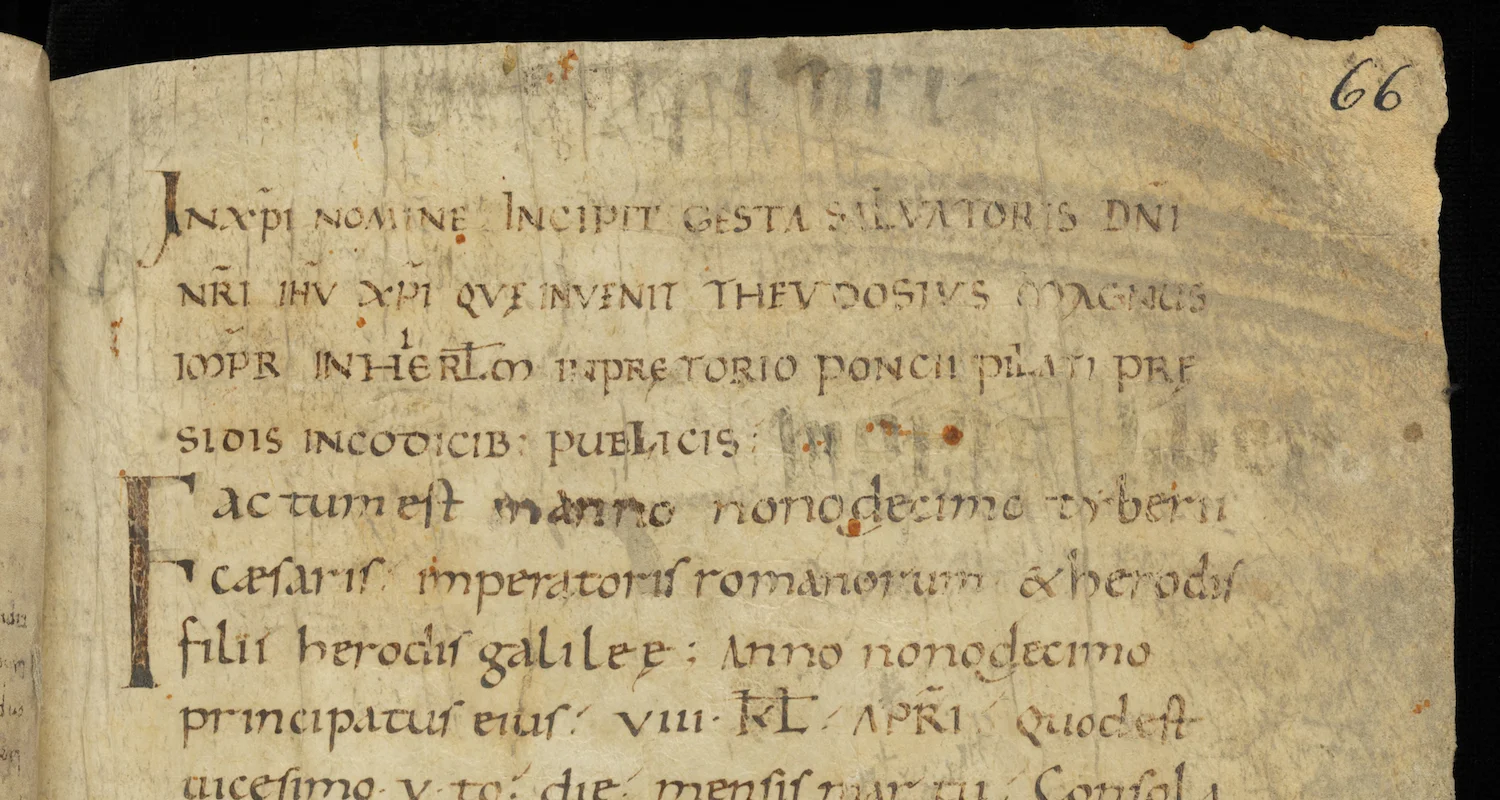 66
IN XP̄I NOMINE INCIPIT GESTA SALVATORIS DN̄I
NR̄I IHV̄ XP̄I QVĘ INVENIT THEVDOSIVS MAGNUS
IMP̄R IN HIERL̄M IN PRĘTORIO PONCII PILATI PRĘ
SIDIS IN CODICIB: PUBLICIS:
Factum est in anno nonodecimo tyberii
cæsaris. imperatoris romanorum & herodis
filii herodis galileę; Anno nonodecimo
principatus eius. VIII. KL̄. APR̄I Quod est
uicesimo. v. to. die. mensis martii. Consola